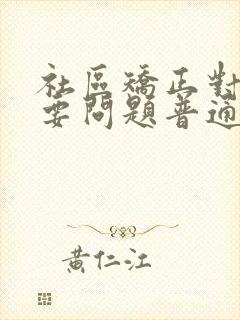 社區矯正對
要問題普通
黃仁江